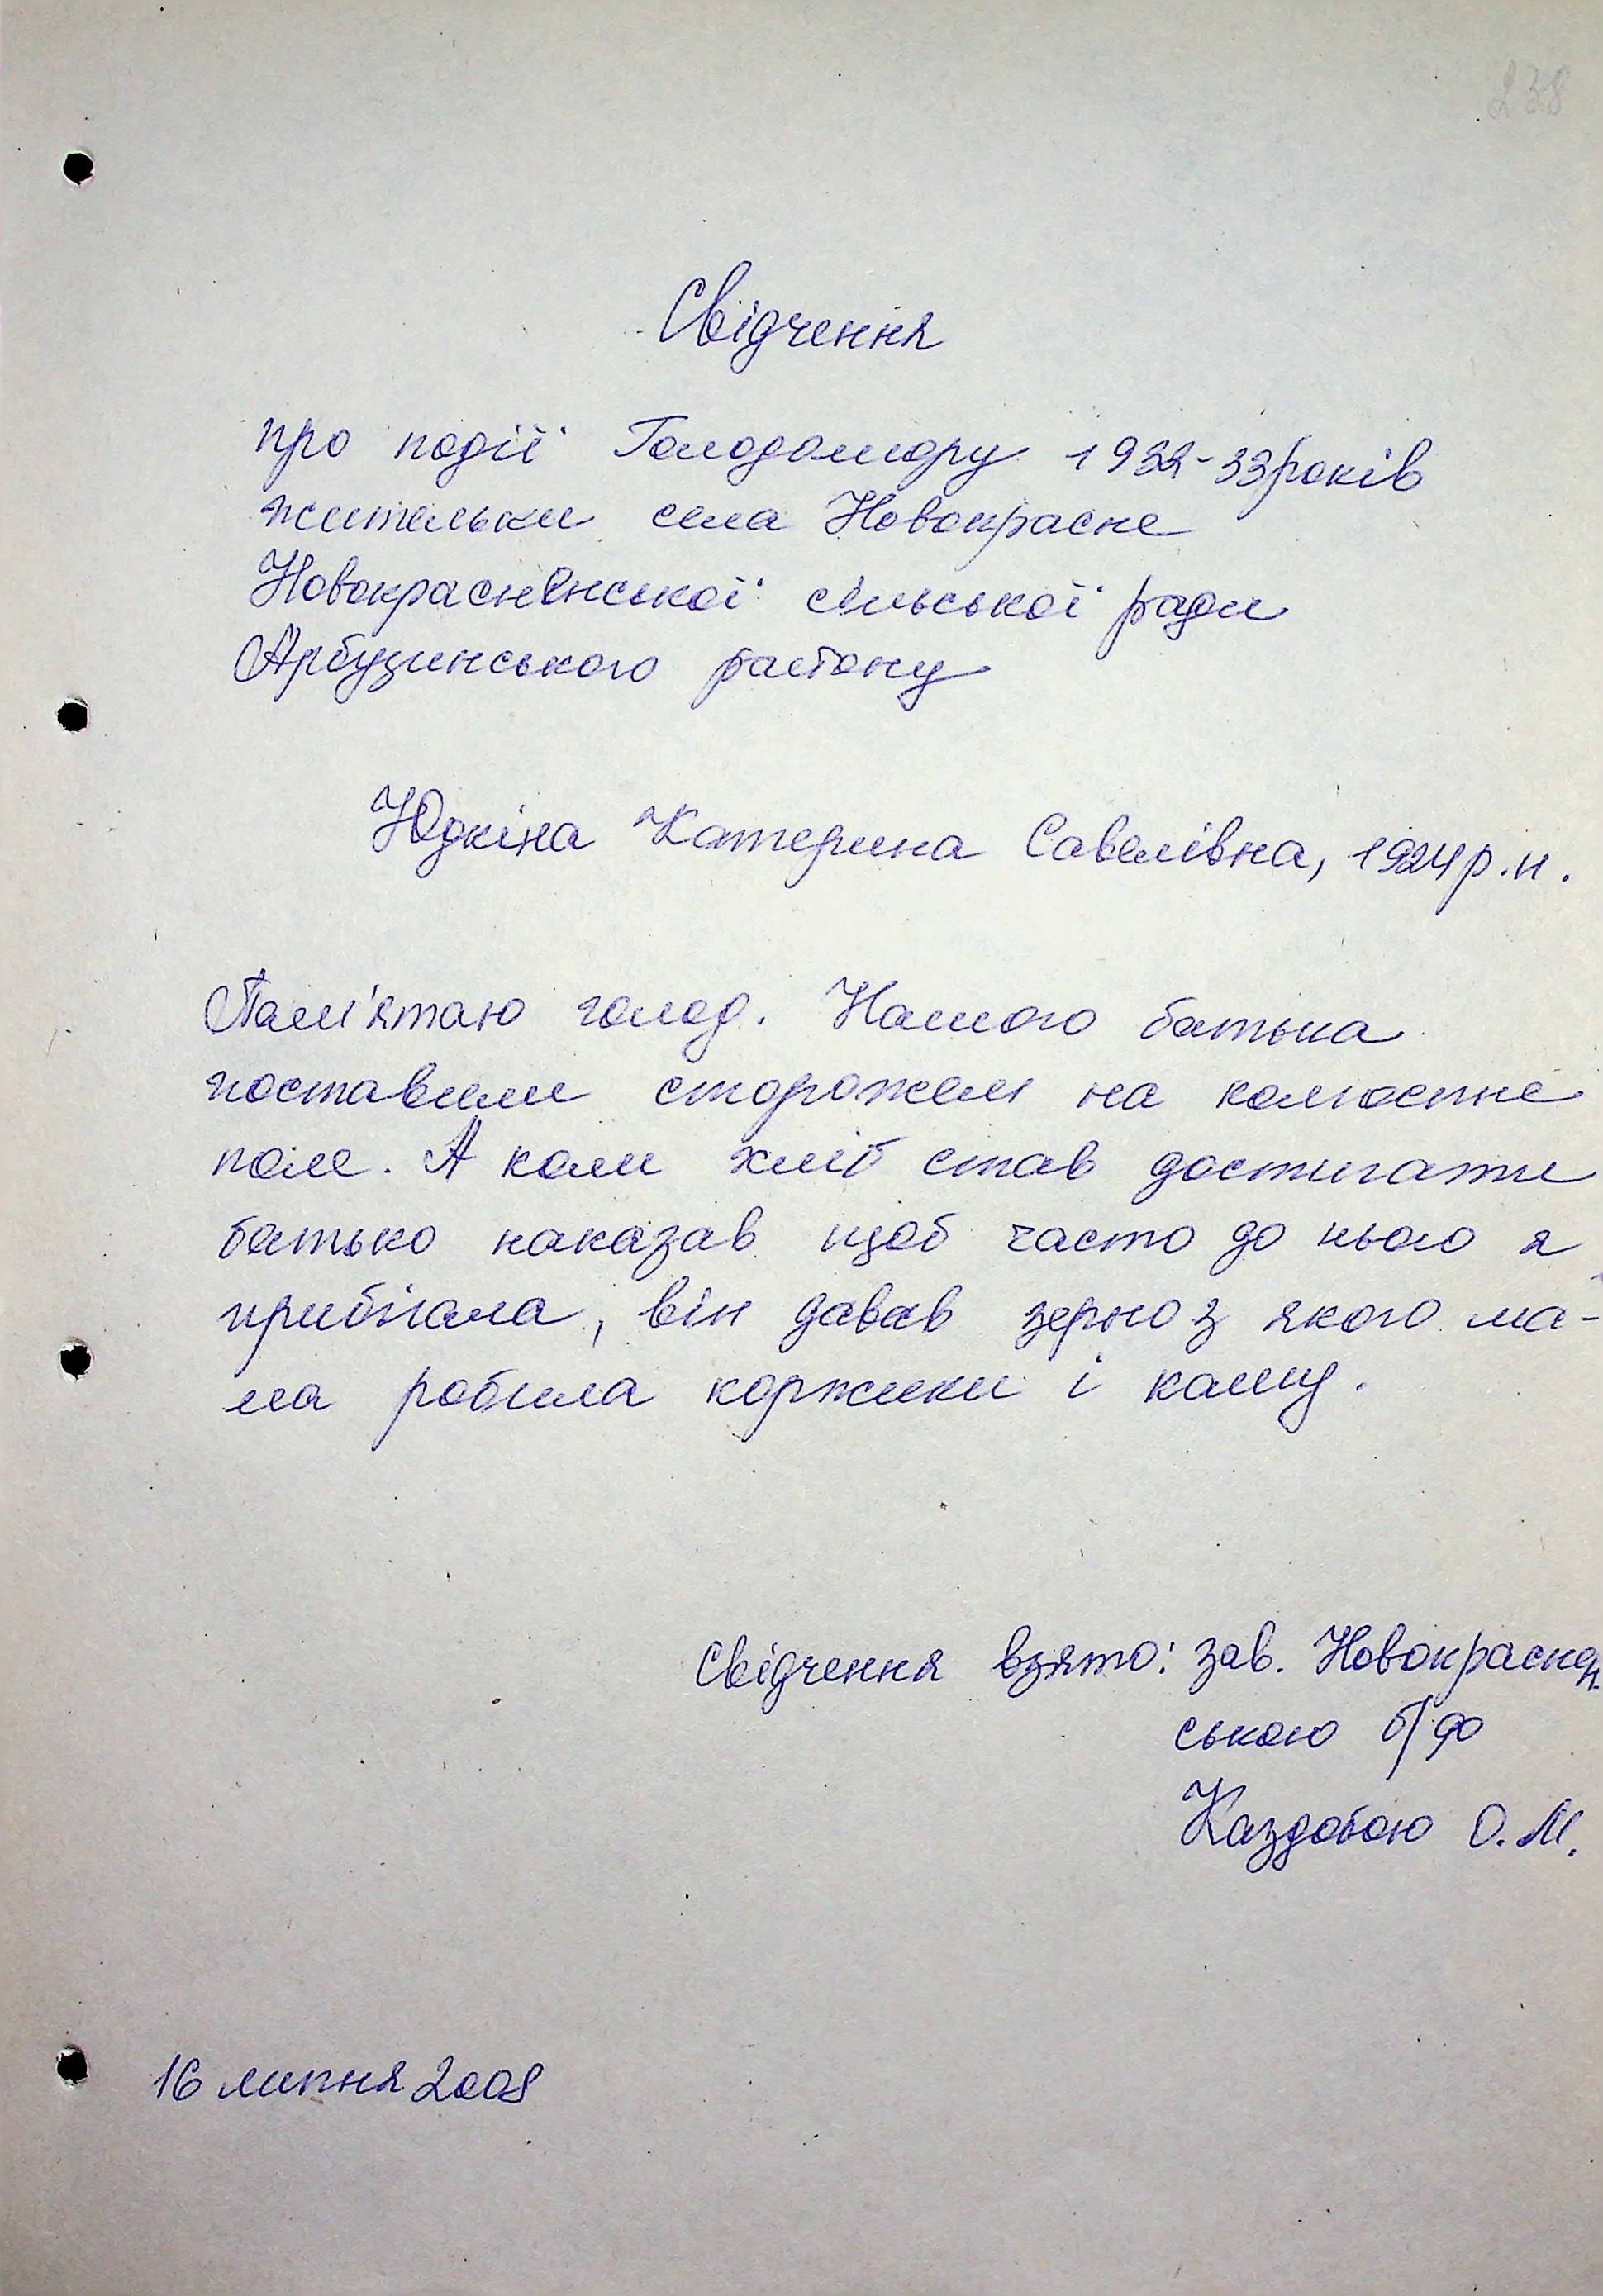 238
Свідчення
про події Голодомору 1932-33 років
жительки села Новокрасне
Новокраснянської сільської ради
Арбузинського району
Юдкіна Катерина Савелівна, 1924 р.н.
Пам'ятаю голод. Нашого батька
поставили сторожем на колгоспне
поле. А коли хліб став достигати
батько наказав щоб часто до нього я
прибігала, він давав зерно з якого ма-
ма робила коржики і кашу.
Свідчення взято: зав. Новокраснян
ською б/ф
Каздобою О.М.
16 липня 2008